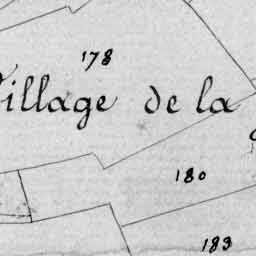 178
Village de la
180
183